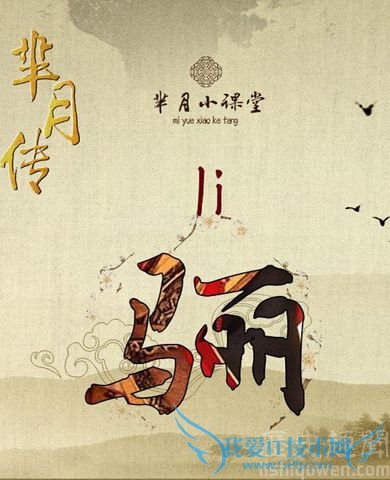 芈月传
芈月小课堂
mi yue xiao ke tang
li
骊
我爱IT技术网
lishiquwen.com